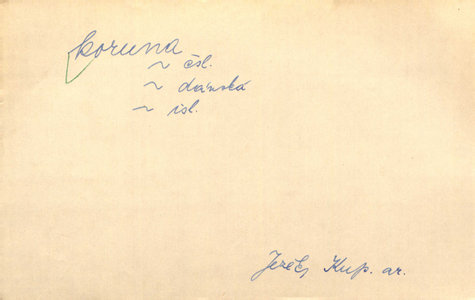 koruna
~ čsl.
~ dánská
~ isl.
Ježek, Kup. ar.